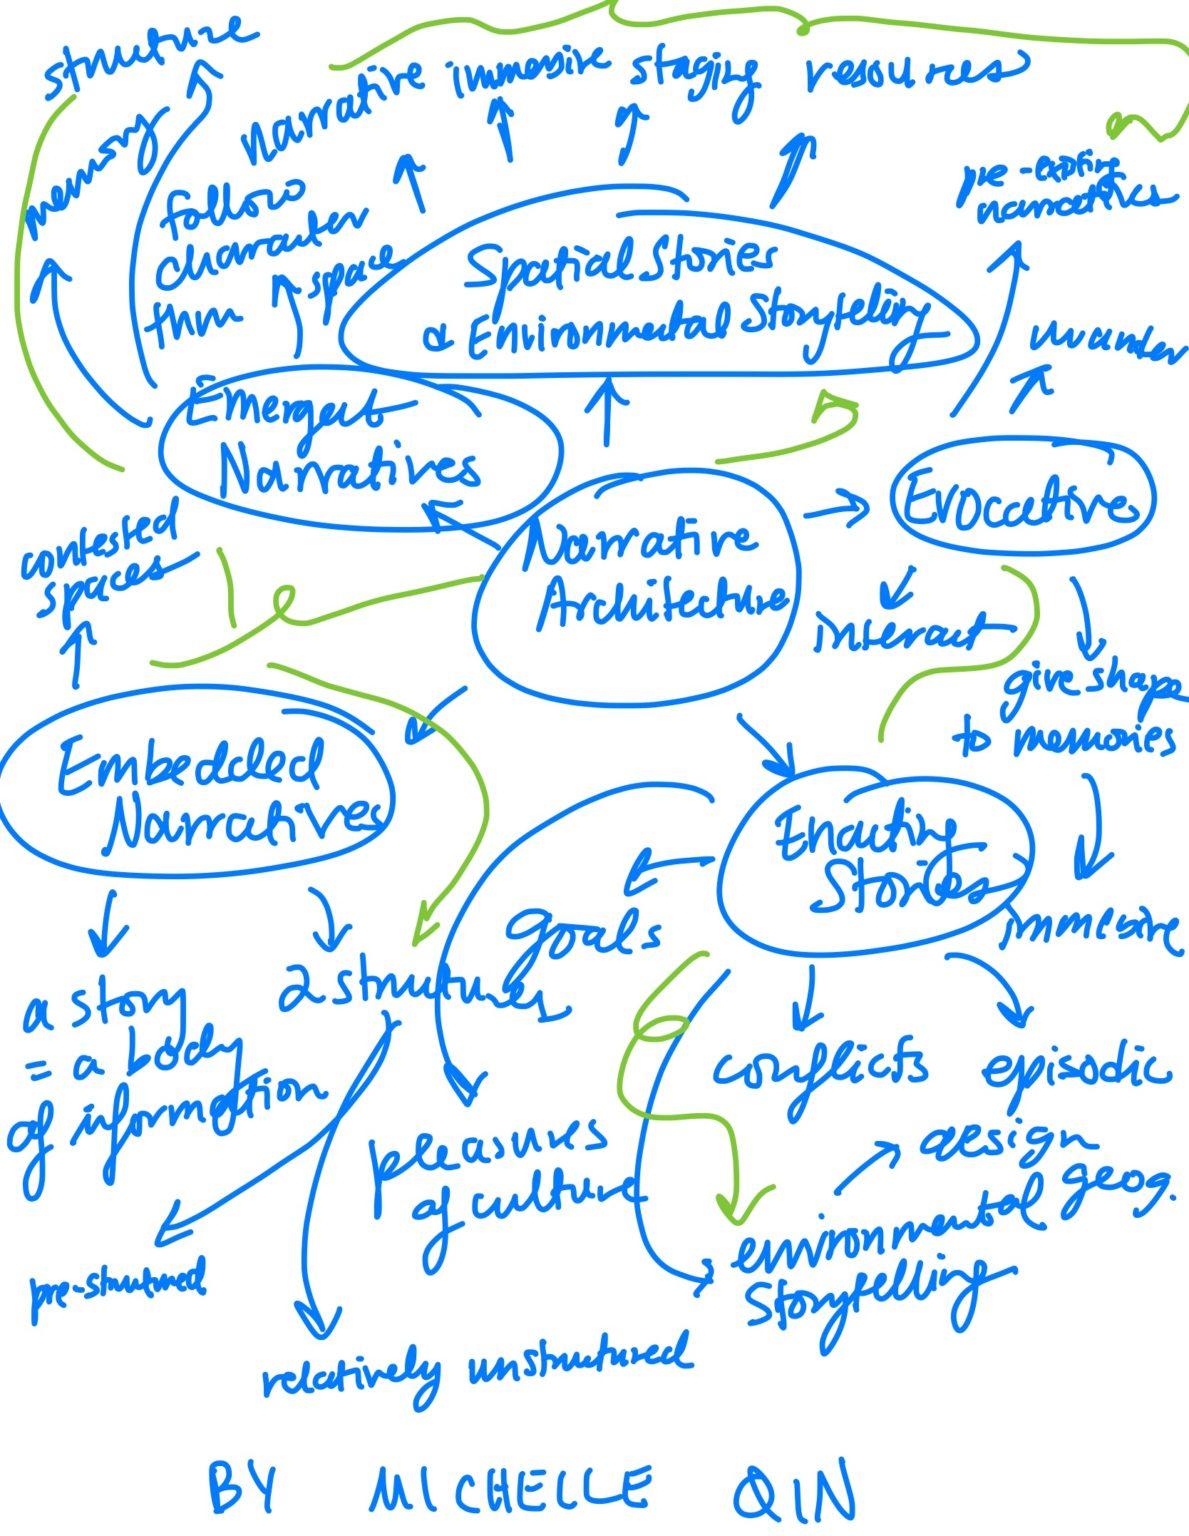 structure
memory
narrative immersive staging resources
follow
character
thru space
pre-existing
narratives
Spatial Stories
& Environmental Storytelling
wander
Emergent
Narratives
Evocative
contested
spaces
Narrative
Architecture
interact
give shape
to memories
Embedded
Narratives
Enacting
Stories
immersive
goals
a story
= a body
of information
2 structures
conflicts
episodic
pleasures
of culture
design
geog.
environmental
storytelling
pre-structured
relatively unstructured
BY MICHELLE QIN